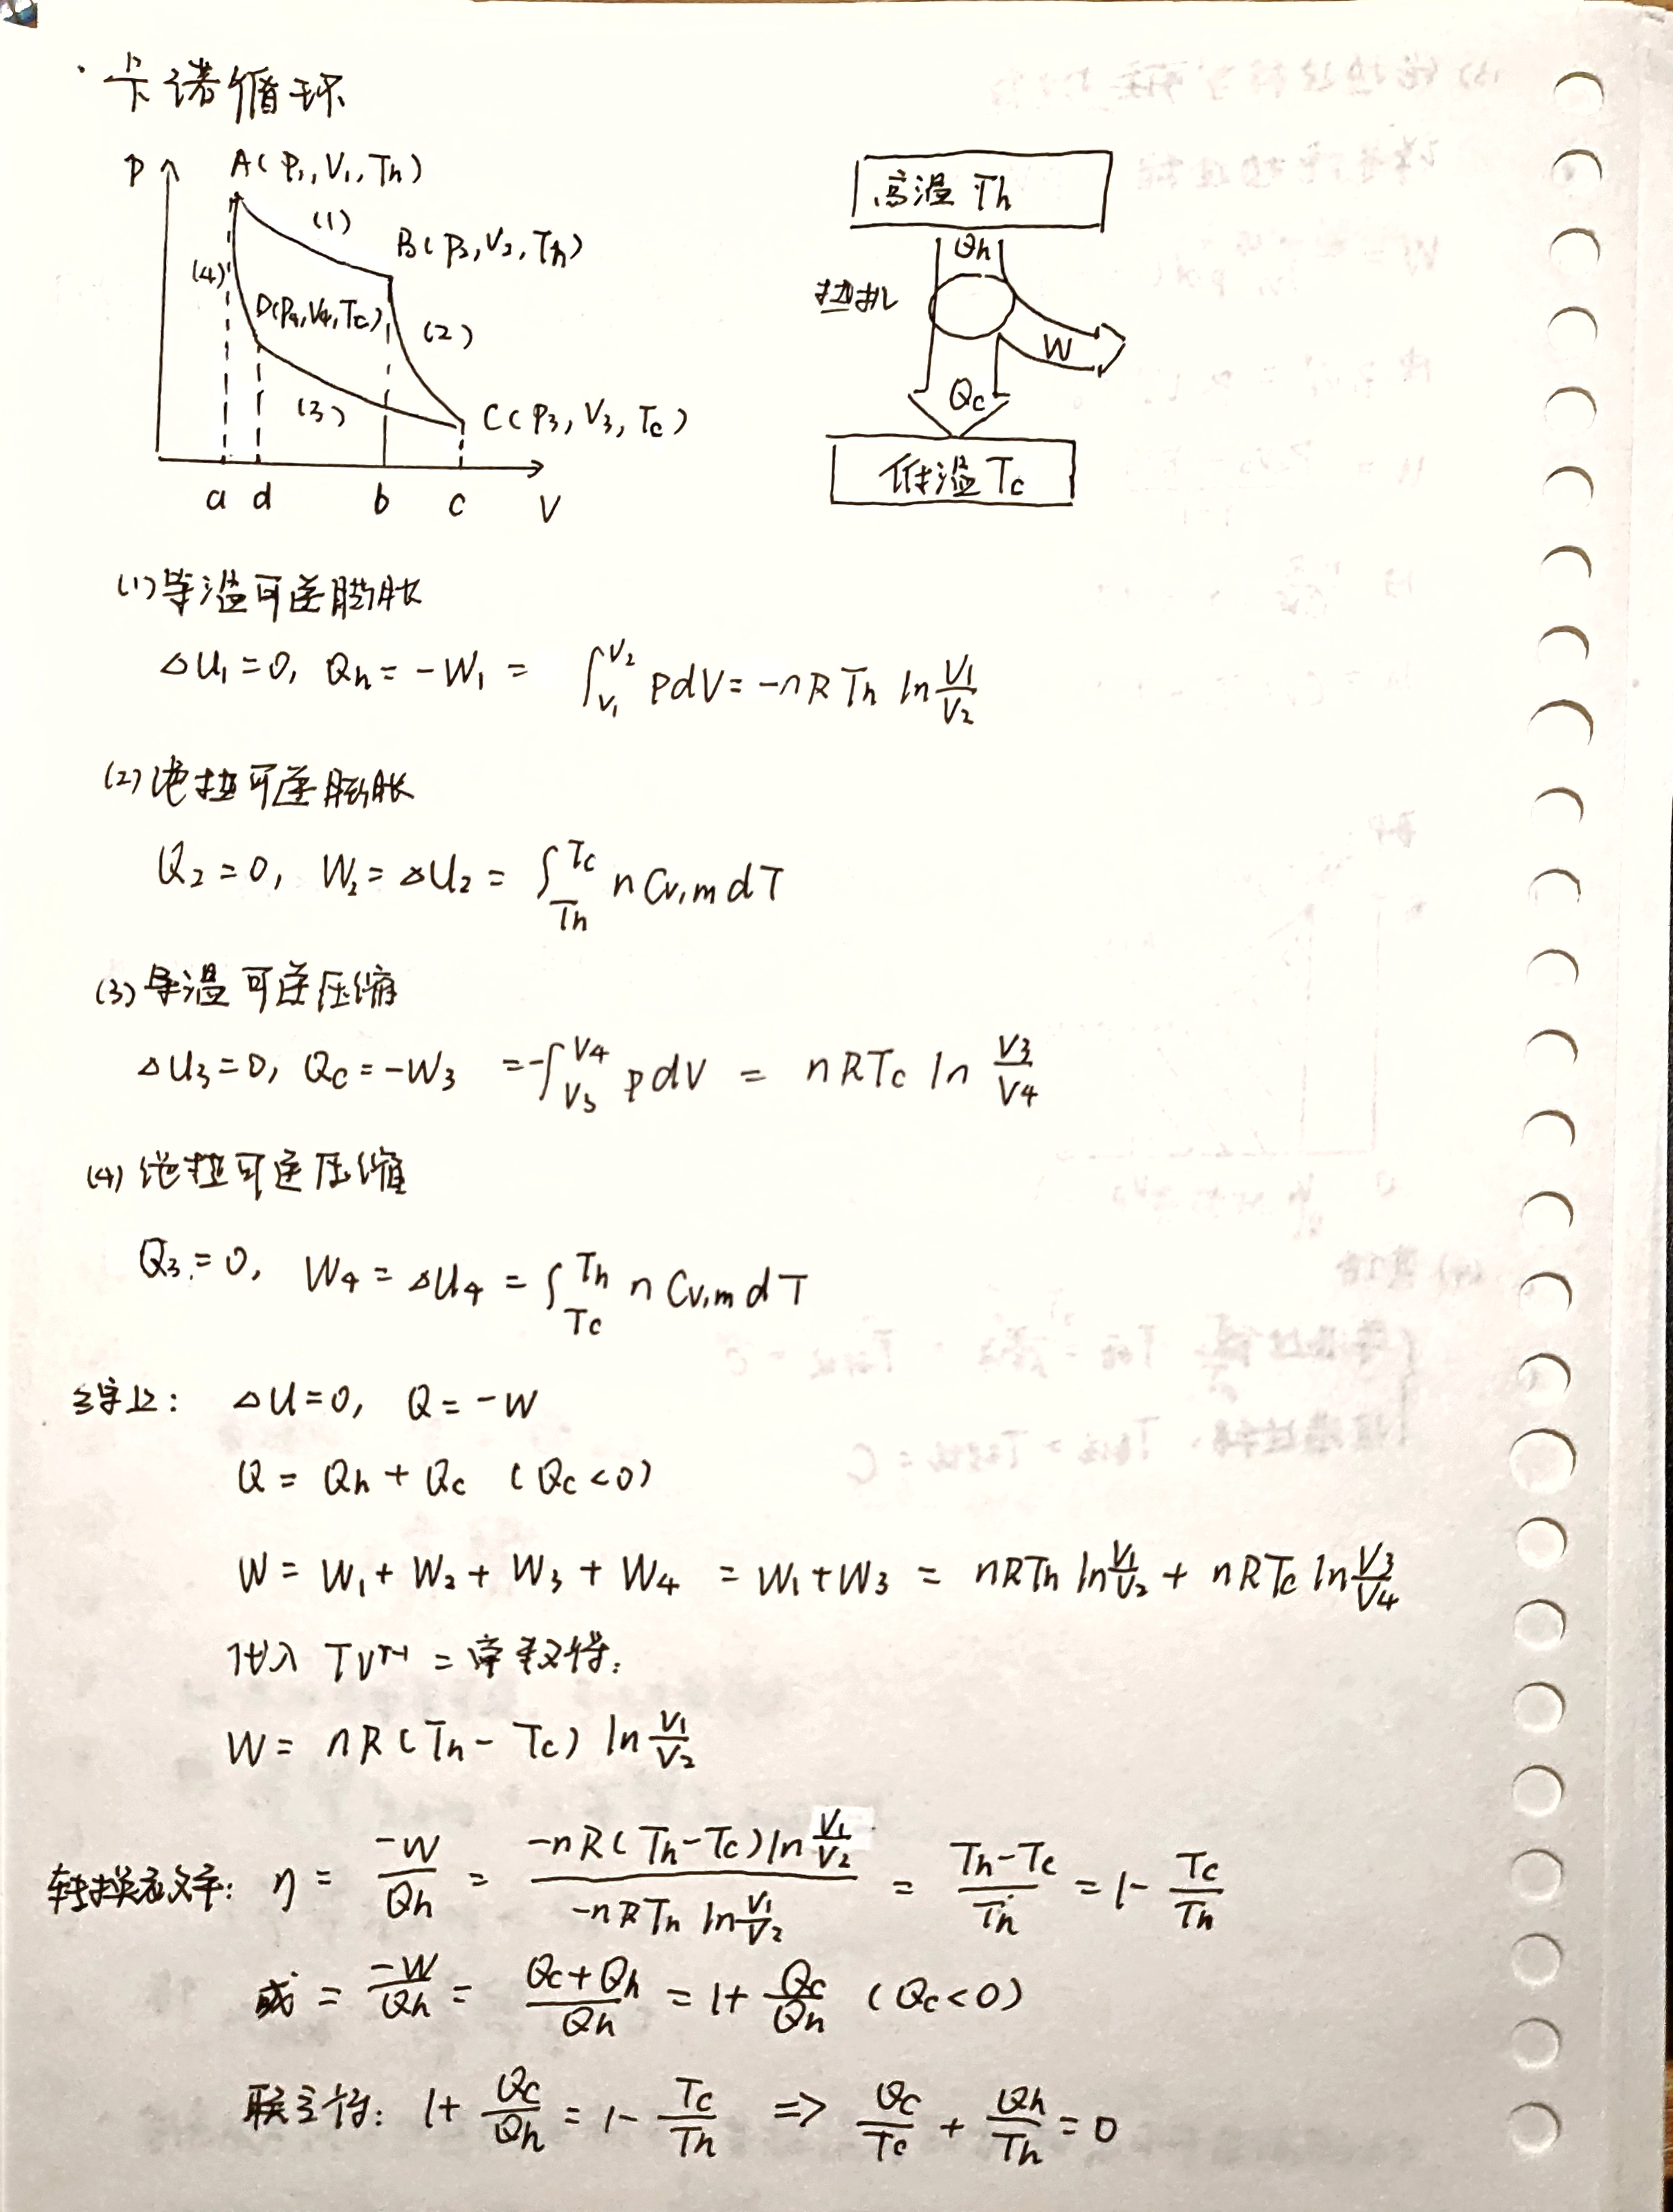 · 卡诺循环
P A(P₁,V₁,Th)
(1)
B(P₂,V₂,Th)
(4)
D(P₄,V₄,Tc)
(2)
(3)
C(P₃,V₃,Tc)
a d b c V
高温 Th
Qh
热机
W
Qc
低温 Tc
(1)等温可逆膨胀
△U₁=0, Qh=-W₁ = ∫_{V₁}^{V₂} pdV=-nRTh ln V₁/V₂
(2)绝热可逆膨胀
Q₂=0, W₂=△U₂ = ∫_{Th}^{Tc} nCv,mdT
(3)等温可逆压缩
△U₃=0, Qc=-W₃ =-∫_{V₃}^{V₄} pdV = nRTc ln V₃/V₄
(4)绝热可逆压缩
Q₃=0, W₄=△U₄ = ∫_{Tc}^{Th} nCv,mdT
综上: △U=0, Q=-W
Q = Qh + Qc (Qc<0)
W = W₁+W₂+W₃+W₄ = W₁+W₃ = nRTh ln V₁/V₂ + nRTc ln V₃/V₄
代入 TV^{γ-1} = 常数得:
W = nR(Th-Tc) ln V₁/V₂
转换效率: η = -W/Qh = -nR(Th-Tc)ln V₁/V₂ / -nRTh ln V₁/V₂ = Th-Tc/Th = 1- Tc/Th
或 = -W/Qh = Qc+Qh/Qh = 1+ Qc/Qh (Qc<0)
联立得: 1+ Qc/Qh = 1- Tc/Th => Qc/Tc + Qh/Th = 0